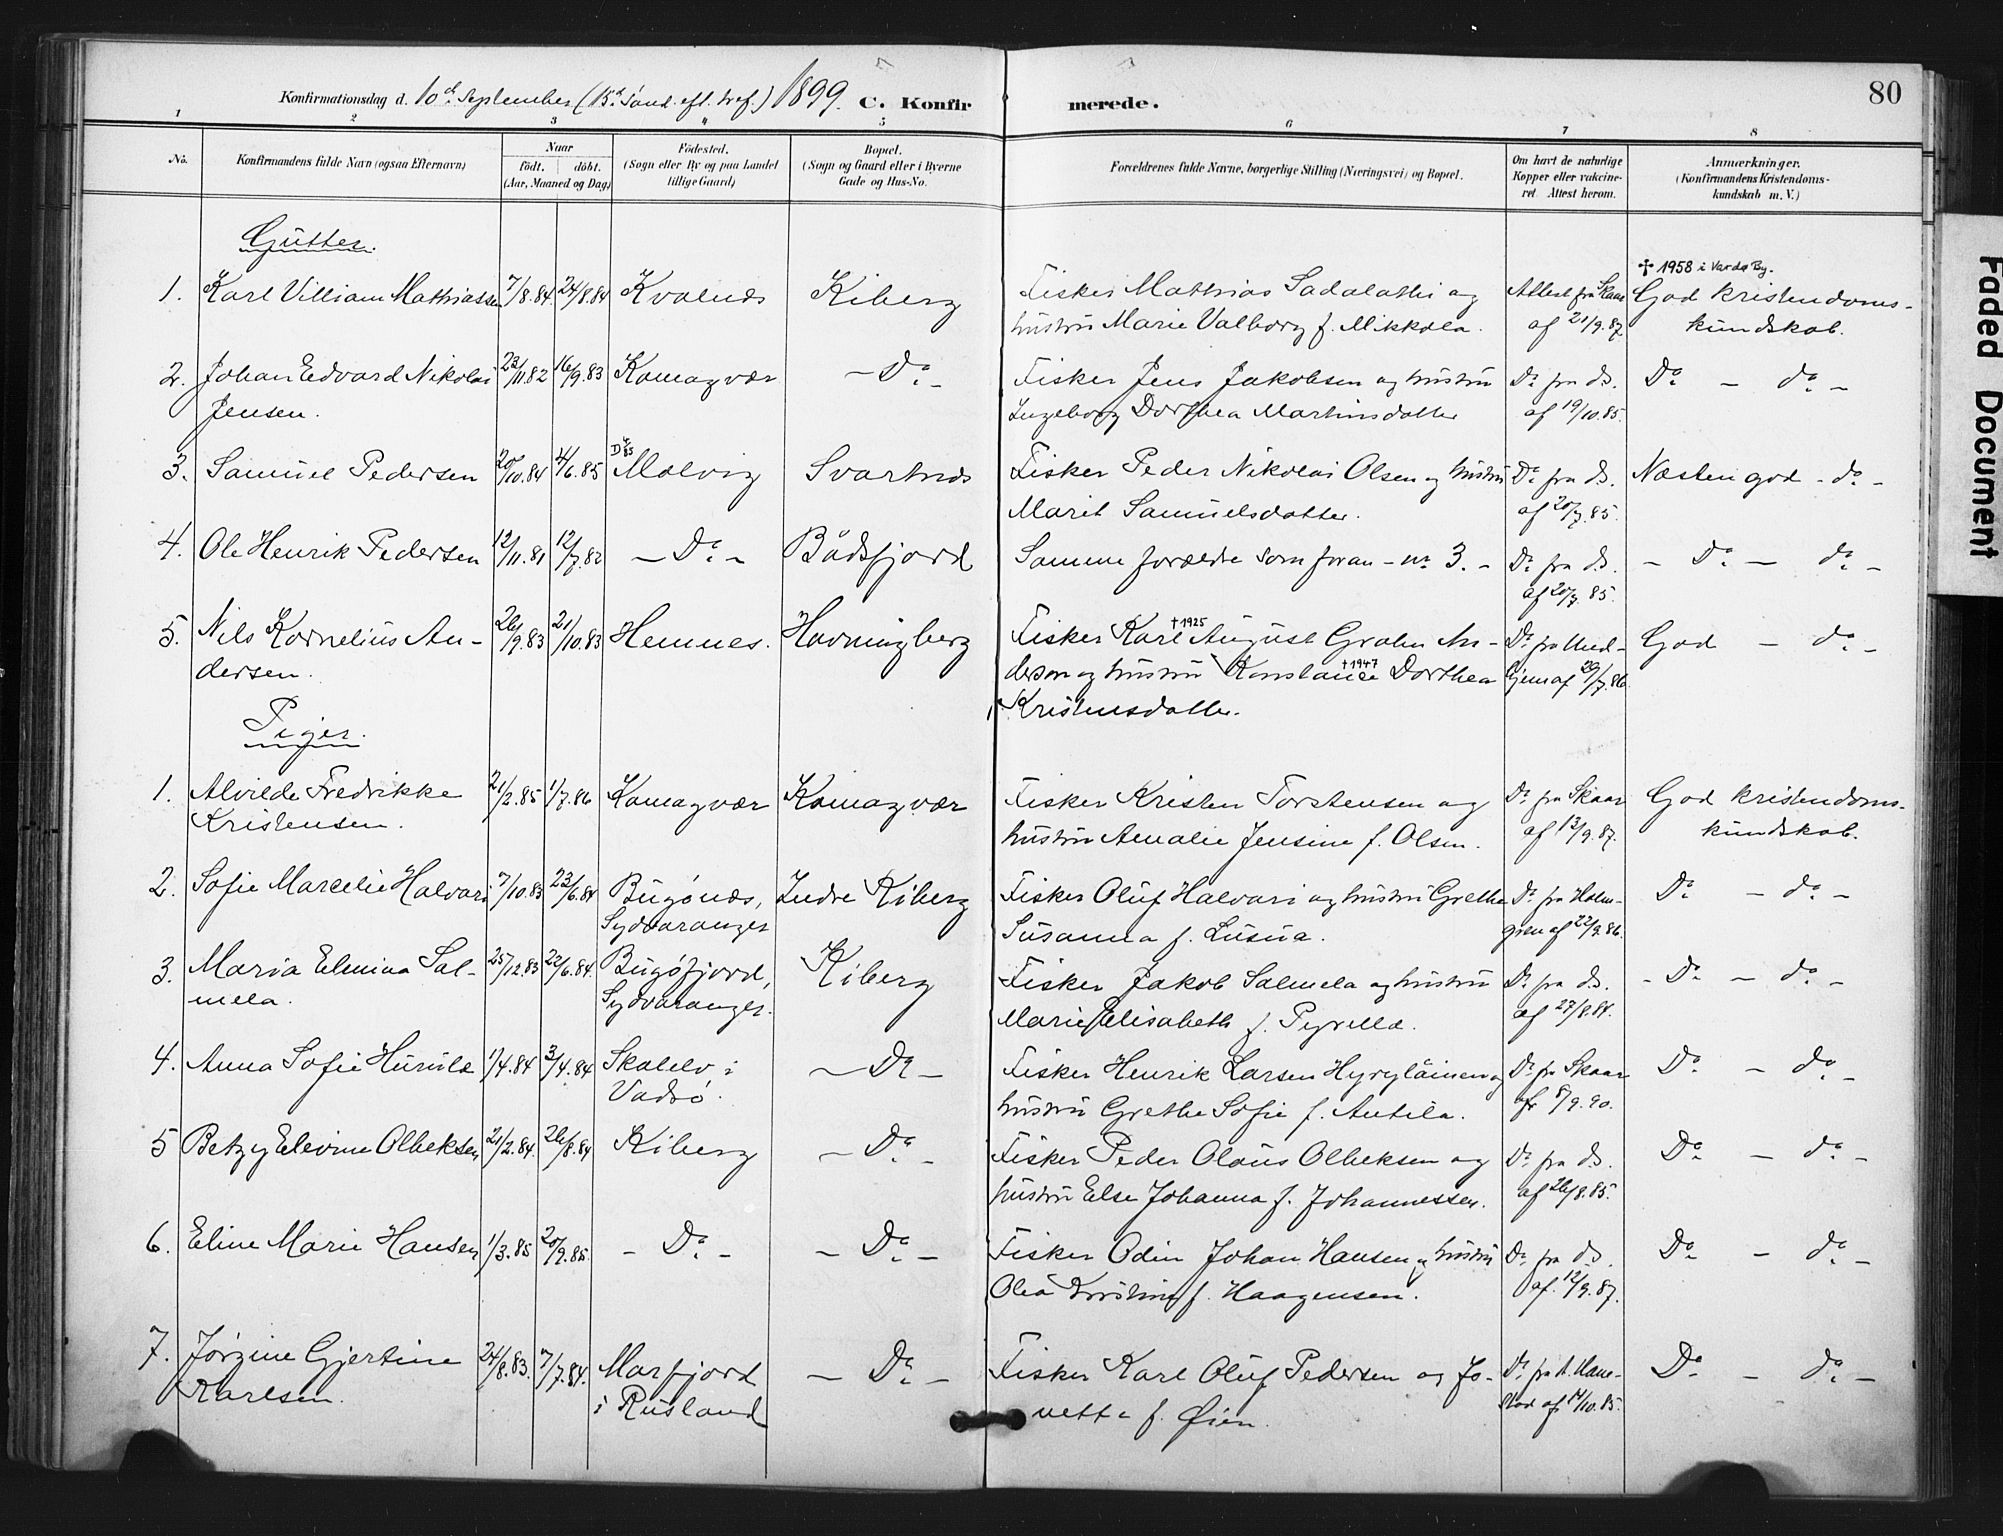 Konfirmationsdag d. 10de September (15de Sønd. eft. tref.) 1899. C. Konfirmerede. 80
1 2 3 4 5 6 7 8
No. Konfirmandens fulde Navn (ogsaa Efternavn) Naar født. døbt. (Aar, Maaned og Dag) Fødested. (Sogn eller By og paa Landet tillige Gaard) Bopæl. (Sogn og Gaard eller i Byerne Gade og Hus-No. Forældrenes fulde Navne, borgerlige Stilling (Næringsvei) og Bopæl. Om havt de naturlige Kopper eller vakcineret. Attest herom. Anmærkninger. (Konfirmandens Kristendomskundskab m. V.)
Gutter.
✝ 1958 i Vardø By.
1. Karl Villiam Mathiassen 7/8.84. 24/8.84 Kvalnes Kiberg Fisker Mathias Sadalathi og Attest fra Skaar God kristendoms-
hustru Marie Valborg f. Mikkola. af 21/9.87. kundskab.
2. Johan Edvard Nikolai 23/11.82 16/9.83 Komagvær - Do - Fisker Jens Jakobsen og hustru Do fra ds. Do - do -
Jensen. Ingeborg Dorthea Martinsdatter af 19/10.85.
3. Samuel Pedersen 20/10.84 4/6.85 Molvig Svartnes Fisker Peder Nikolai Olsen og hustru Do fra ds. Næsten god - do -
Marit Samuelsdatter. af 20/7.85.
4. Ole Henrik Pedersen 12/11.81 12/7.82 - Do - Bådsfjord Samme forældre som foran - nr. 3. - Do fra ds. - Do - do -
af 20/7.85.
5. Nils Kornelius An- 26/9.83 21/10.83 Hemnes. Havningberg Fisker Karl August Grahn An- Do fra Hued- God - do -
†1925
dersen. derson og hustru Konstance Dorthea gjem af 29/7.86.
†1947
Kristensdatter.
Piger.
1. Alvilde Fredrikke 21/2.85 1/7.86 Komagvær Komagvær Fisker Kristen Torstensen og Do fra Skaar God kristendoms-
Kristensen. hustru Amalie Jensine f. Olsen. af 13/9.87. kundskab.
2. Sofie Marcelie Halvari 7/10.83 23/6.84 Bugønes, Indre Kiberg Fisker Oluf Halvari og hustru Grethe Do fra Holm- Do - do -
Sydvaranger Susanna f. Lusua. gren af 22/9.86.
3. Maria Elmina Sal- 25/12.83 22/6.84. Bugøfjord, Kiberg Fisker Jakob Salmela og hustru Do fra ds. - Do - do -
mela. Sydvaranger. Marie Elisabeth f. Pyrellä. af 27/8.84.
4. Anna Sofie Hurula 1/4.84 3/4.84 Skalelv i - Do - Fisker Henrik Larsen Hyryläinen og Do fra Skaar Do - do -
Vadsø. hustru Grethe Sofie f. Antila. af 8/9.90.
5 Betzy Elevine Olbeksen 21/2.84. 26/8.84 Kiberg - Do - Fisker Peder Olaus Olbeksen og Do fra ds. Do - do -
hustru Else Johanna f. Johannessen. af 26/8.85.
6. Eline Marie Hansen 1/3.85 20/9.85. - Do - - Do - Fisker Odin Johan Hansen og hustru Do fra ds. Do - do -
Olea Kristine f. Haagensen. af 12/9.87.
7. Jørgine Gjertine 24/8.83. 7/7.84. Marfjord - Do - Fisker Karl Oluf Pedersen og Jo- Do fra A. Hane- Do - do -
Karlsen. i Rusland netta f. Øien. stad af 14/10.85.
Faded Document